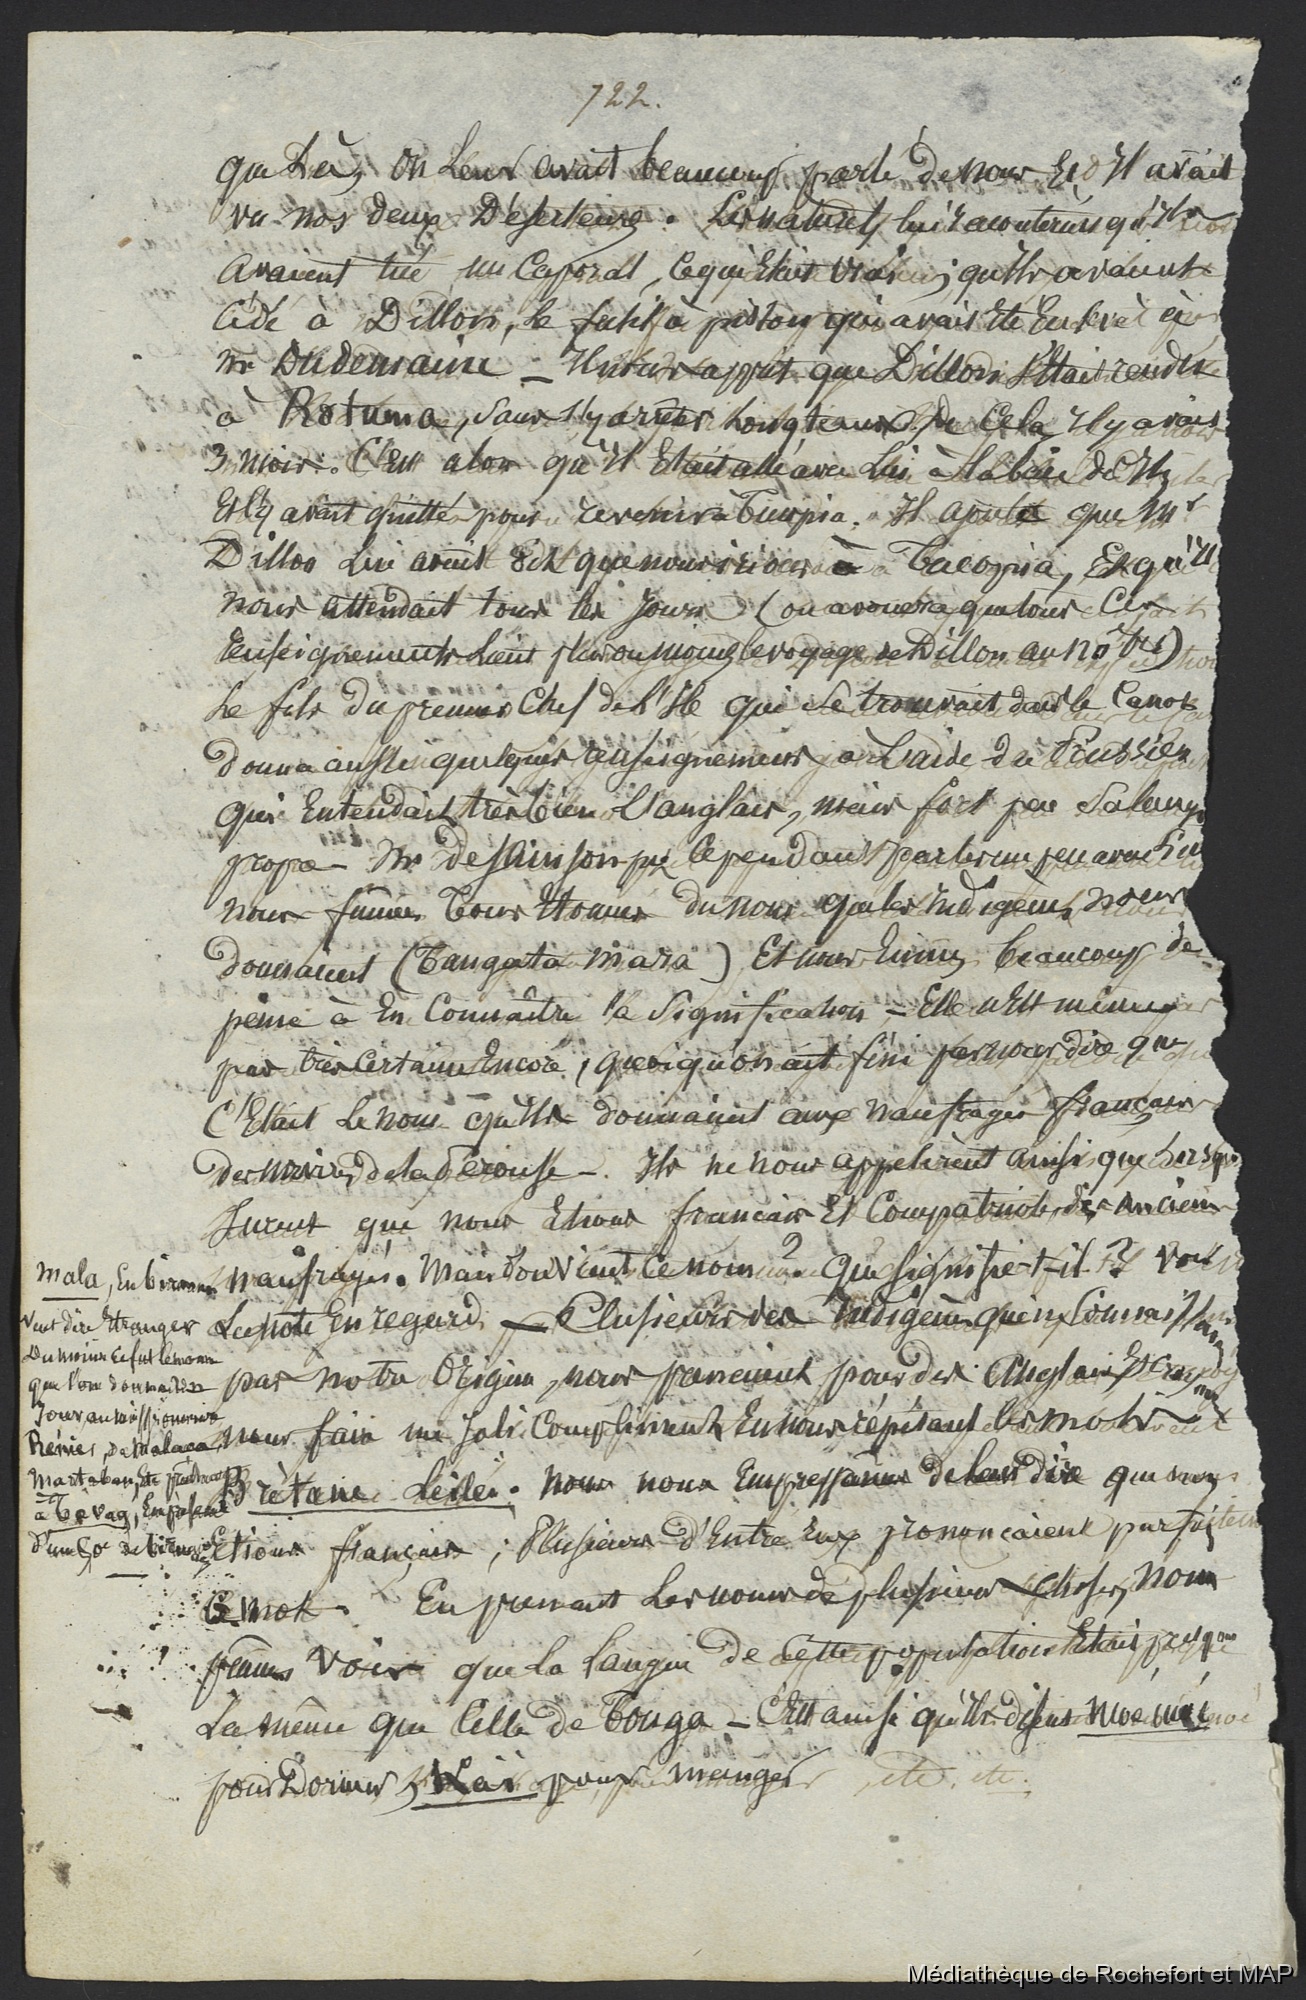 722.
que Là, on Leur avait beaucoup parlé de nous Et il avait
vu nos deux Déserteurs. Les naturels lui racontèrent qu'ils
avaient tué un Caporal, Ce qui Etait vrai; qu'ils avaient
Cédé à Dillon, Le fusil à piston qui avait Eté Enlevé à
Mr Dudemaine _ appris que Dillon S'Etait rendu
à Rotuma, Sans S'y arrêter Longtems. De Cela, il y avait
3 mois. C'Est alors qu'il Etait allé avec Lui à la baie des Iles
Et L'y avait quitté pour revenir à Tucopia. Il ajouta que Mr
Dillon Lui avait dit que nous irions à Tucopia, Et qu'il
nous attendait tous les Jours (on avouera que tous Ces
renseignements Lient plus ou moins le voyage de Dillon au nôtre)
Le fils du premier Chef de l'Ile qui Se trouvait dans le Canot
donna aussi quelques renseignemens à L'aide du Prussien
qui Entendait très bien L'anglais, mais fort peu Sa langue
propre _ Mr de Sainson put Cependant parler un peu avec Lui
nous fûmes Tous Etonnés du nom que les indigènes nous
donnaient (Tangata mara) Et nous Eûmes beaucoup de
peine à En Connaître la Signification _ Elle n'Est même
pas très Certaine Encore, quoiqu'on ait fini par nous dire que
C'Etait Le nom qu'ils donnaient aux naufragés français
des navires de la Pérouse _. Ils ne nous appelèrent ainsi que Lorsqu'ils
Surent que nous Etions français Et Compatriotes des anciens
naufragés. Mais d'ou Vient Ce nom? Que Signifie-t-il? Voir
La note En regard _ Plusieurs des Indigènes qui ne Connaissaient
pas notre Origine, nous prenaient pour des Anglais Et Croyaient
nous faire un Joli Compliment En nous répétant les mots
Brétane Léléi. Nous nous Empressâmes de leur dire que nous
Etions français; Plusieurs d'Entre Eux prononçaient parfaitement
Ce mot. En prenant Les noms de plusieurs Choses, nous
pûmes Voir que La Langue de Cette population Etait presque
La même que Celle de Tonga _ C'Est ainsi qu'ils disent moé moé
pour Dormir, Kaï pour manger, etc. etc.
Mala, En birman
Veut dire Etranger
Du moins Ce fut le nom
que l'on donnait Les
Jours, au missionnaire
de malaca
Martaban, Etc
à Tavay, En présence
d'un Cel de